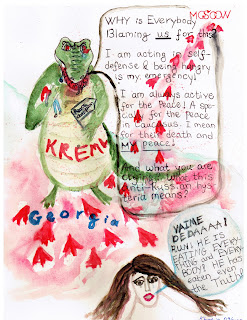 MOSCOW
WHY is Everybody
Blaming us for this
I am acting in self-
defense & being hungry
is my emergency!
I am always active
for the Peace! A spe-
cially for the peace
in Caucasus. I mean
for their death and
MY peace!
And what you are
like this
anti-Russian hys
teria means?
KREML
Georgia
VAINE
DEDAAAA!
RUN! HE IS
EATING EVERY
THING and EVERY
BODY! HE HAS
eaten even
the Truth!